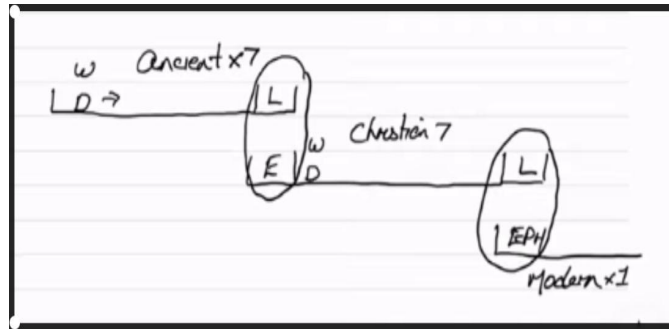 W Ancient x7
D → L
W Christian 7
E D L
EPH
Modern x1